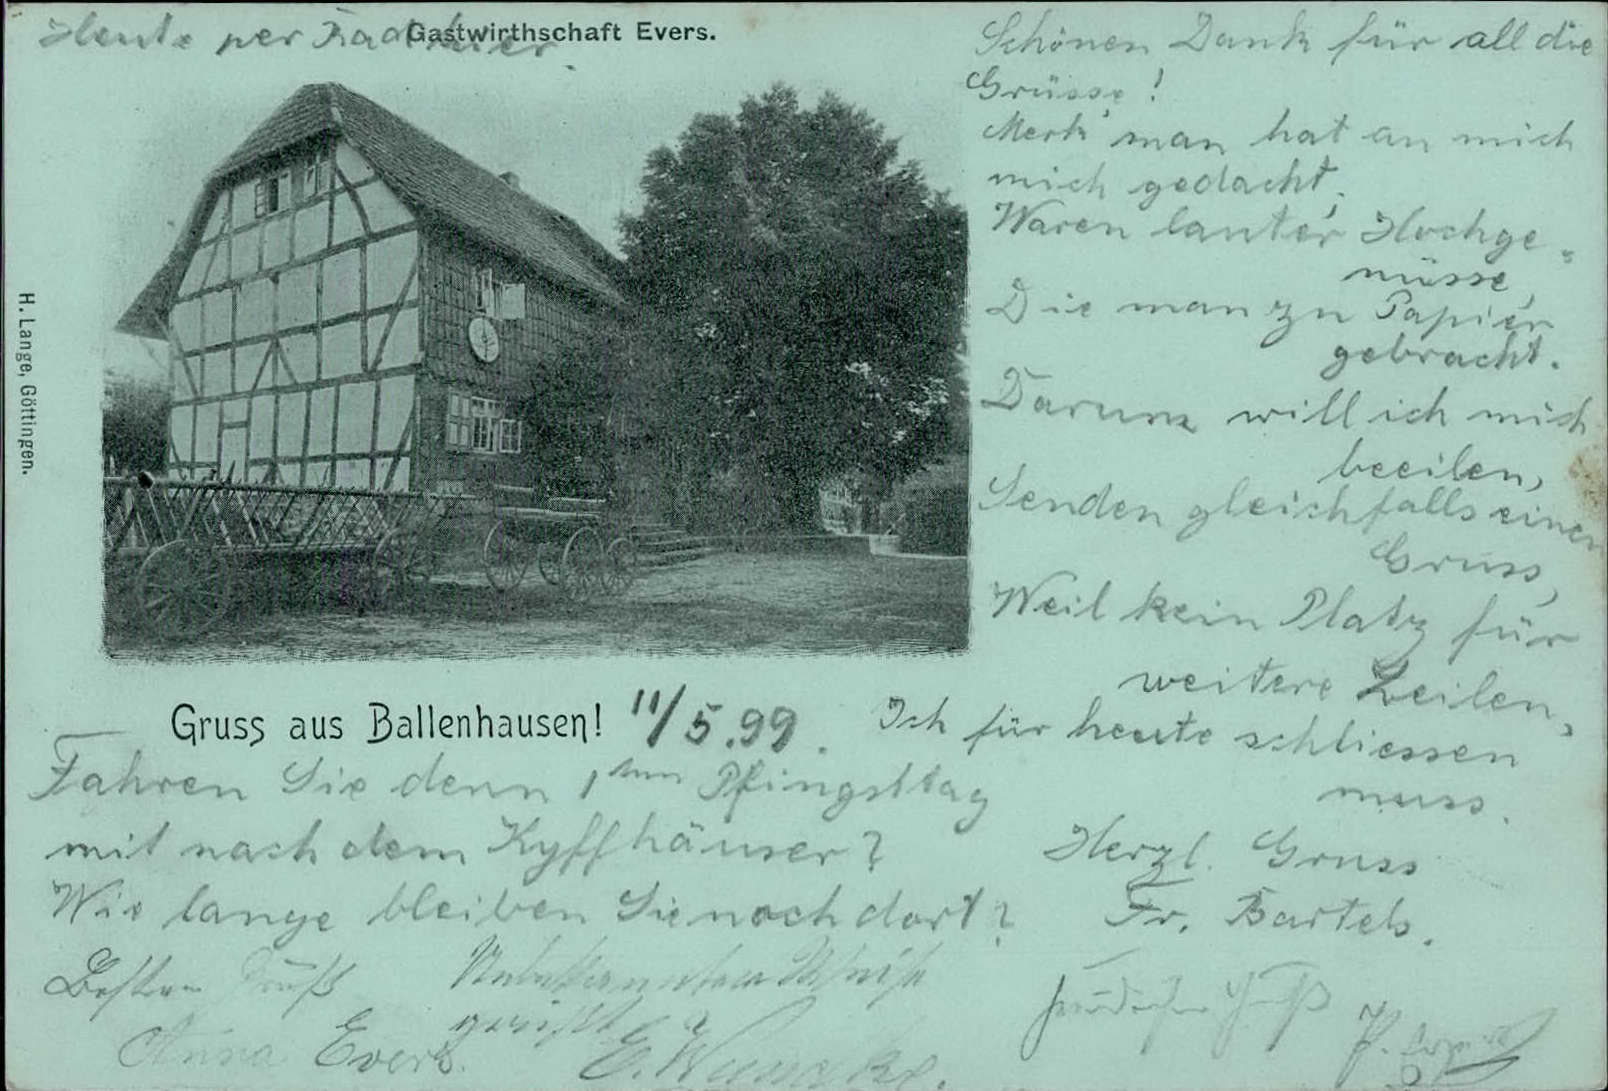 Heute per Rad hier.
Gastwirthschaft Evers.
H. Lange, Göttingen.
Schönen Dank für all die
Grüsse!
Merk' man hat an mich
mich gedacht,
Waren lauter Hochge-
nüsse,
Die man zu Papier
gebracht.
Darum will ich mich
beeilen,
Senden gleichfalls einen
Gruss,
Weil kein Platz für
weitere Zeilen,
Ich für heute schliessen
muss.
Herzl. Gruss
Fr. Bartels.
Gruss aus Ballenhausen! 11/5.99.
Fahren Sie denn 1ten Pfingsttag
mit nach dem Kyffhäuser?
Wie lange bleiben Sie noch dort?
Besten Gruß
Anna Evers.
Unbekannter Weise
grüßt